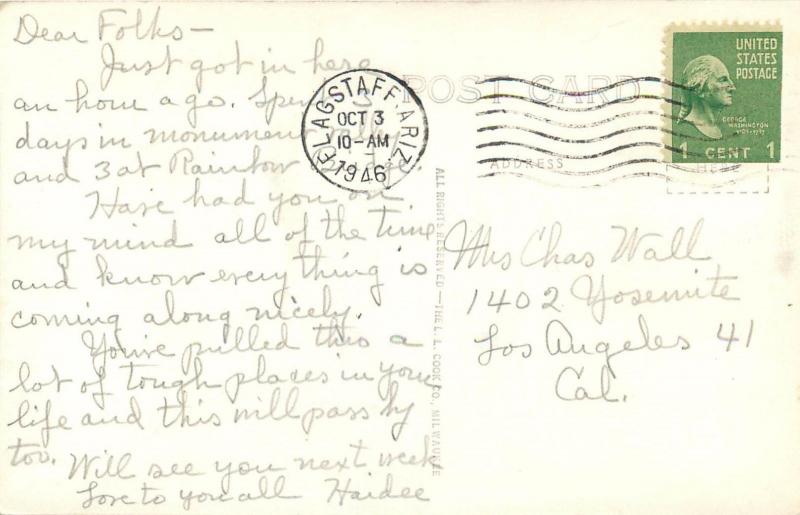 Dear Folks—
Just got in here
an hour ago. Spent 3
days in monument valley
and 3 at Rainbow
Have had you on
my mind all of the time
and know everything is
coming along nicely.
You've pulled thru a
lot of tough places in your
life and this will pass by
too. Will see you next week
Love to you all Haidee
FLAGSTAFF ARIZ.
OCT 3
10-AM
1946
POST CARD
ADDRESS
HERE
UNITED
STATES
POSTAGE
GEORGE
WASHINGTON
1 CENT 1
ALL RIGHTS RESERVED—THE L. L. COOK CO., MILWAUKEE
Mrs Chas Wall
1402 Yosemite
Los Angeles 41
Cal.